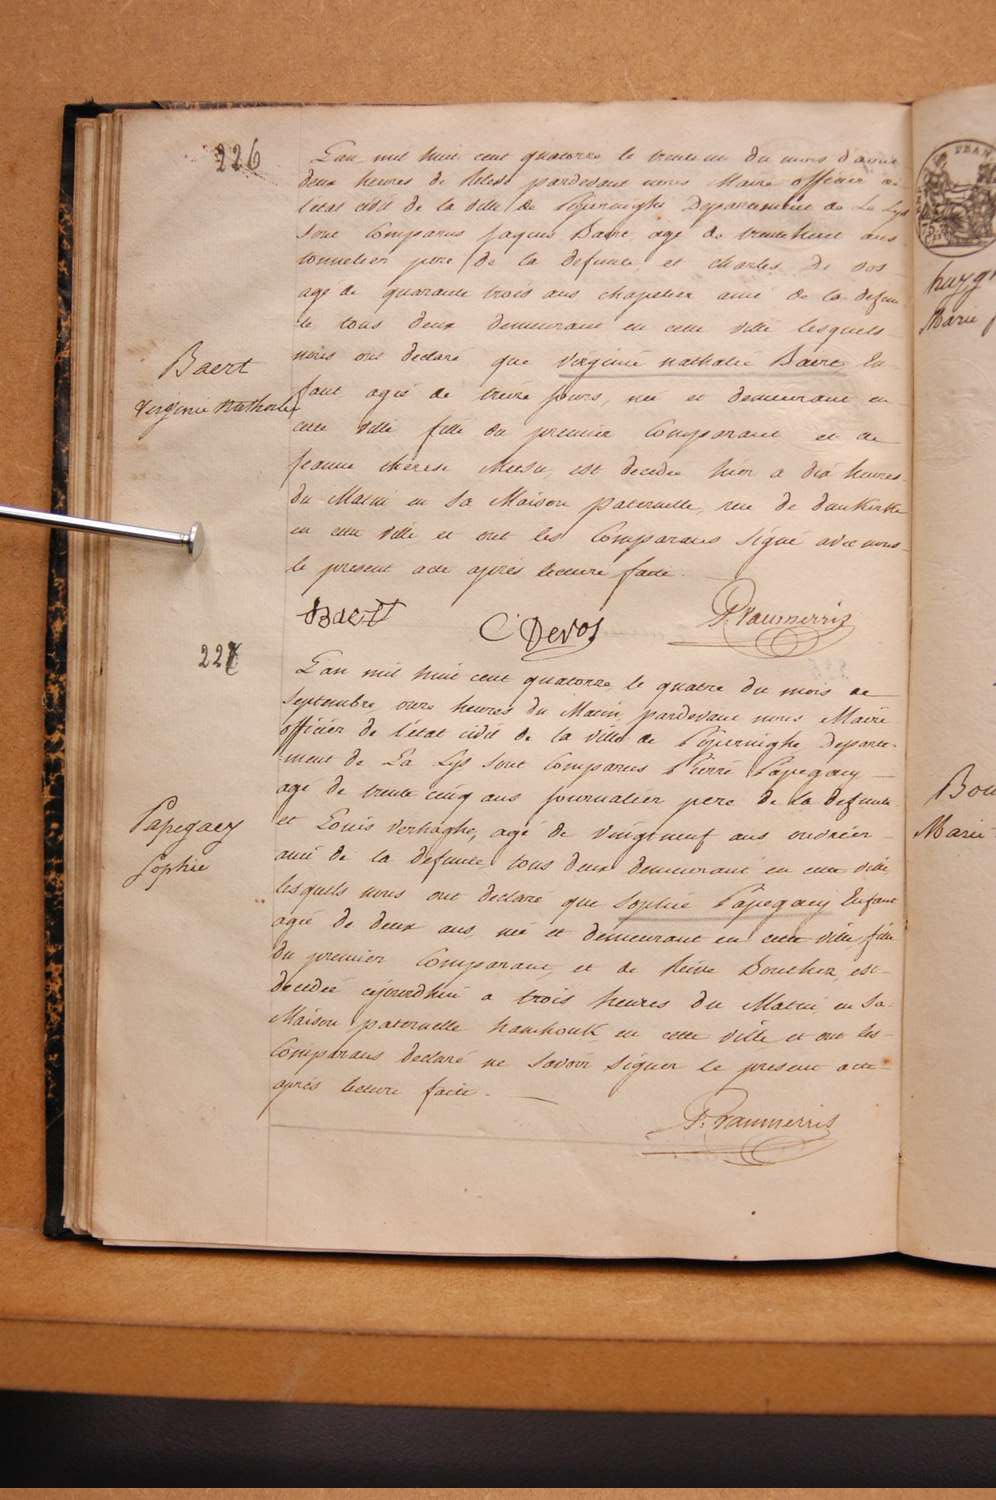 226
L'an mil huit cent quatorze le trente un du mois d'aout
deux heures de Relevé pardevant nous Maire officier de
l'etat civil de la ville de Péperinghe Departement de La Lys
sont Comparus Jaques Baert, agé de trente huit ans
tonnelier pere de la defunte, et charles De vos
agé de quarante trois ans chapelier ami de la defun
te tous deux demeurant en cette ville lesquels
nous ont declaré que virginie nathalie Baert En
Baert
Virginie Nathalie
fant agés de treize jours, née et demeurant en
cette ville fille du premier Comparant et de
jeanne thérese est decedée hier a dix heures
du Matin en sa Maison paternelle, rue de dunkerke
en cette ville et ont les Comparans signé avec nous
le present acte après lecture faite.
Baert C Devos P. Vanmerris
227
L'an mil huit cent quatorze, le quatre du mois de
Septembre onze heures du Matin, pardevant nous Maire
officier de l'état civil de la ville de Péperinghe Departe-
-ment de La Lys sont Comparus Pierre Papegaey
agé de trente cinq ans journalier pere de la defunte
Papegaey
Sophie
et Louis verhaghe, agé de vingtneuf ans ouvrier
ami de la defunte, tous deux demeurant en cette ville,
lesquels nous ont declaré que Sophie Papegaey Enfant
agée de deux ans, née et demeurant en cette ville, fille
du premier Comparant, et de Reine Boucher, est
decedée cejourdhui a trois heures du Matin en sa
Maison paternelle en cette ville et ont les
Comparans declaré ne savoir signer le present acte
après lecture faite.
P. Vanmerris
FRAN
Marie
Bou
Marie